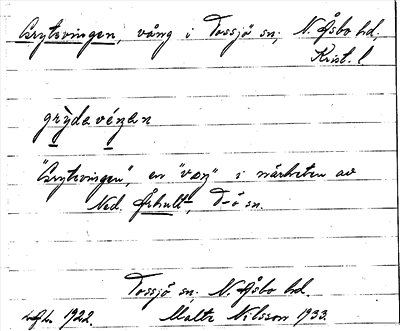 Grytevingen, vång i Tossjö sn, N. Åsbo hd,
Krist. l
grỳdevéŋen
"Grytevingen", en "væŋ" i närheten av
Ned. Örhult, T-ö sn.
Tossjö sn, N. Åsbo hd.
1922. Malte Nilsson 1933.